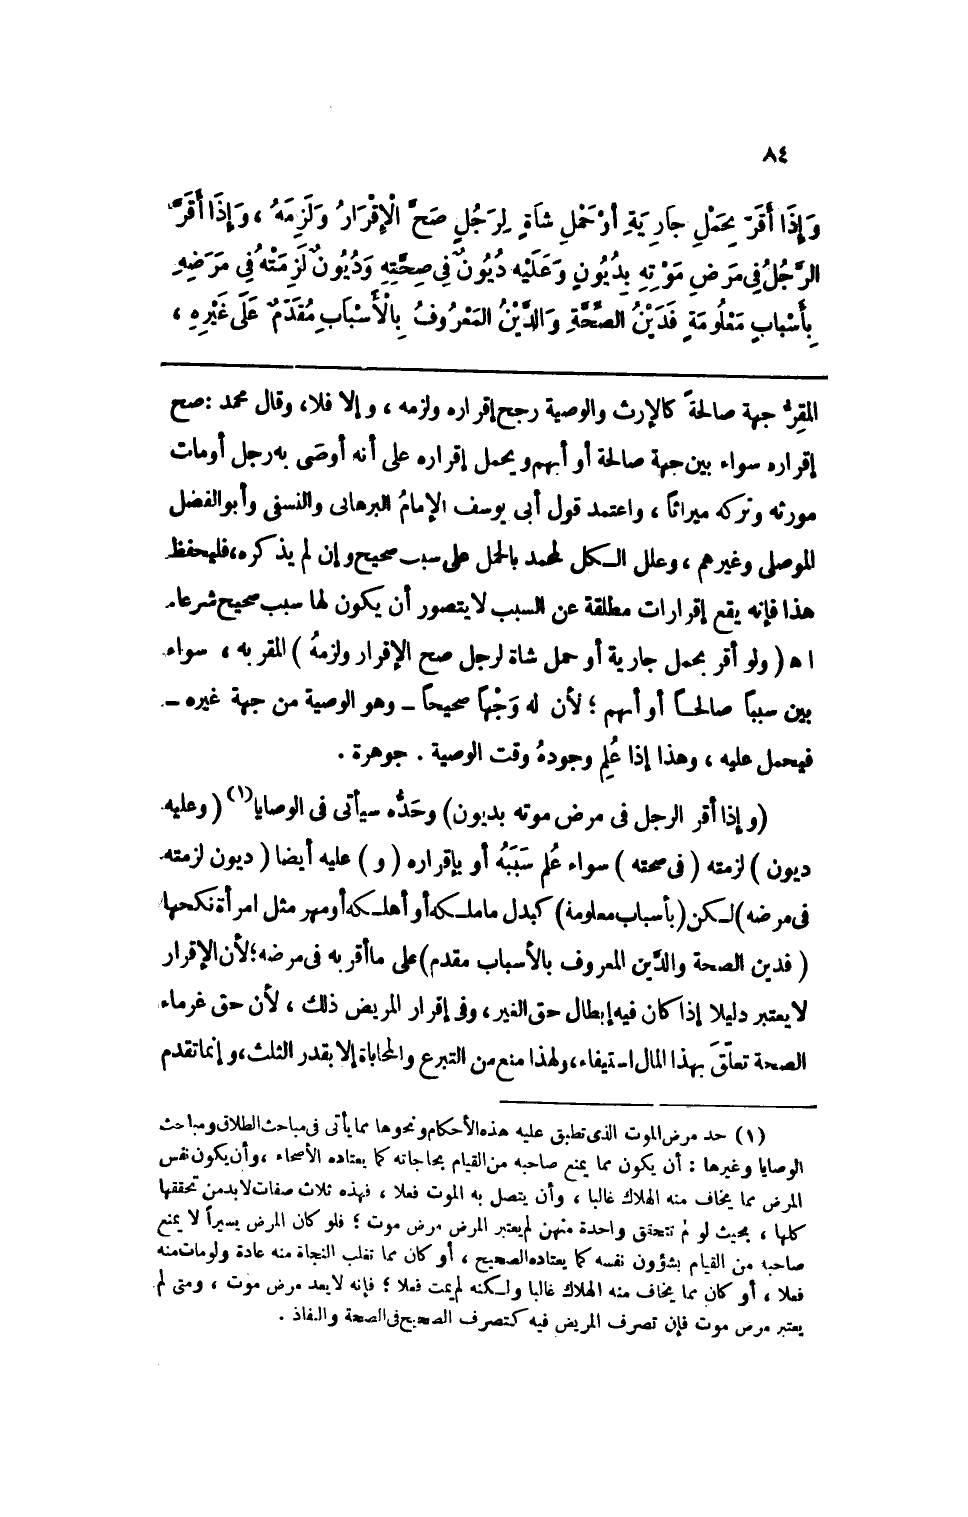 ٨٤
وَإِذَا أَقَرَّ بِحَمْلِ جَارِيَةٍ أَوْ حَمْلِ شَاةٍ لِرَجُلٍ صَحَّ الْإِقْرَارُ وَلَزِمَهُ ، وَإِذَا أَقَرَّ
الرَّجُلُ فِي مَرَضِ مَوْتِهِ بِدُيُونٍ وَعَلَيْهِ دُيُونٌ فِي صِحَّتِهِ وَدُيُونٌ لَزِمَتْهُ فِي مَرَضِهِ
بِأَسْبَابٍ مَعْلُومَةٍ فَدَيْنُ الصِّحَّةِ وَالدَّيْنُ المَعْرُوفُ بِالْأَسْبَابِ مُقَدَّمٌ عَلَى غَيْرِهِ ،
المقِرُّ جهة صالحةً كالإرث والوصية رجح إقراره ولزمه ، وإلا فلا، وقال محمد : صح
إقراره سواء بين جهة صالحة أو أبهم ويحمل إقراره على أنه أوصَى به رجل أو مات
مورثه وتركه ميراثاً ، واعتمد قول أبى يوسف الإمامُ البرهانى والنسفى وأبو الفضل
الموصلى وغيرهم ، وعلل الكل لمحمد بالحمل على سبب صحيح وإن لم يذكره، فليحفظ
هذا فإنه يقع إقرارات مطلقة عن السبب لا يتصور أن يكون لها سبب صحيح شرعاً.
ا هـ ( ولو أقر بحمل جارية أو حمل شاة لرجل صح الإقرار ولزمهُ ) المقر به ، سواء
بين سبباً صالحاً أو أبهم ؛ لأن له وَجْهاً صحيحاً – وهو الوصية من جهة غيره –
فيحمل عليه ، وهذا إذا عُلِم وجودهُ وقت الوصية . جوهرة .
(وإذا أقر الرجل فى مرض موته بديون) وحَدُّه سيأتى فى الوصايا(١) ( وعليه
ديون ) لزمته ( فى صحته ) سواء عُلم سَبَبُه أو بإقراره ( و ) عليه أيضا ( ديون لزمته
فى مرضه ) لكن ( بأسباب معلومة ) كبدل ما ملكه أو أهلكه أو مهر مثل امرأة نكحها
( فدين الصحة والدَّين المعروف بالأسباب مقدم ) على ما أقر به فى مرضه ؛ لأن الإقرار
لا يعتبر دليلا إذا كان فيه إبطال حق الغير ، وفى إقرار المريض ذلك ، لأن حق غرماء
الصحة تعلّقَ بهذا المال استيفاء، ولهذا منع من التبرع والمحاباة إلا بقدر الثلث، وإنما تقدم
(١) حد مرض الموت الذى تطبق عليه هذه الأحكام ونحوها مما يأتى فى مباحث الطلاق ومباحث
الوصايا وغيرها : أن يكون مما يمنع صاحبه من القيام بحاجاته كما يعتاده الأصحاء ، وأن يكون نفس
المرض مما يخاف منه الهلاك غالبا ، وأن يتصل به الموت فعلا ، فهذه ثلاث صفات لابد من تحققها
كلها ، بحيث لو لم تتحقق واحدة منهن لم يعتبر المرض مرض موت ؛ فلو كان المرض يسيراً لا يمنع
صاحبه من القيام بشؤون نفسه كما يعتاده الصحيح ، أو كان مما تغلب النجاة منه عادة ولو مات منه
فعلا ، أو كان مما يخاف منه الهلاك غالبا ولكنه لم يمت فعلا ؛ فإنه لا يعد مرض موت ، ومتى لم
يعتبر مرض موت فإن تصرف المريض فيه كتصرف الصحيح فى الصحة والنفاذ .